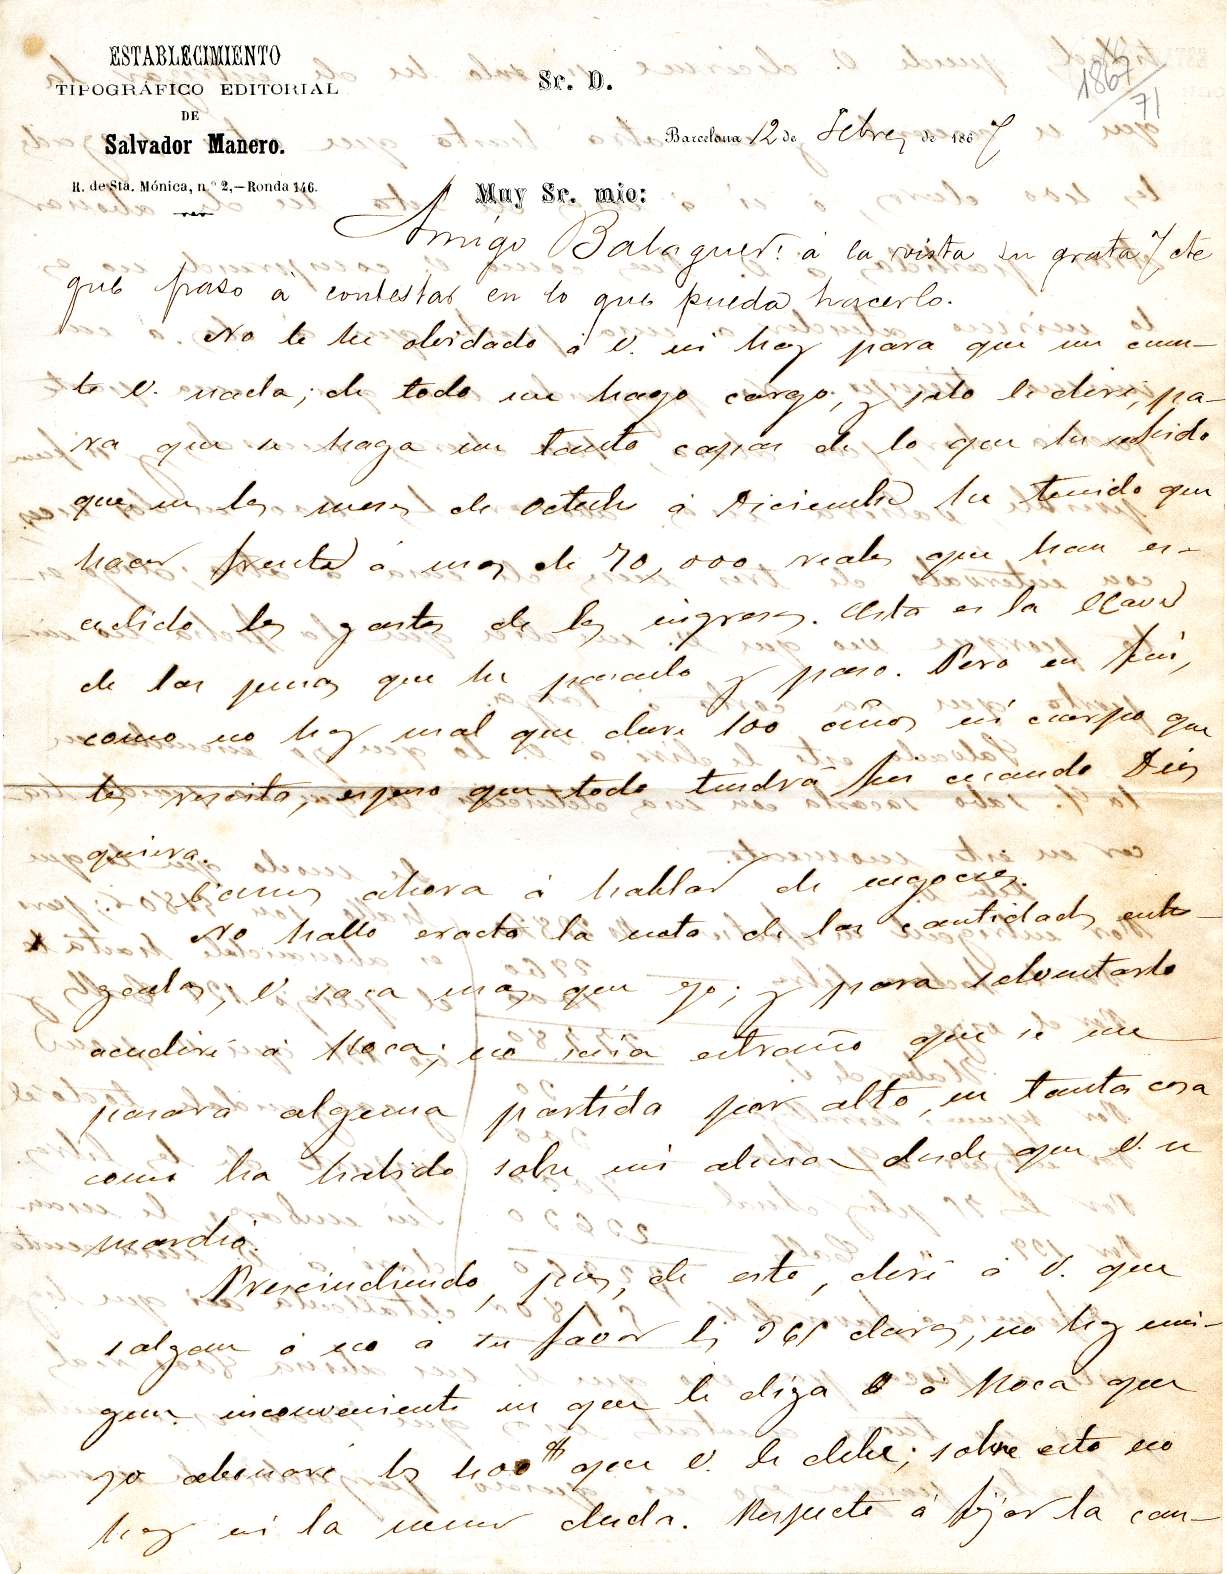 ESTABLECIMIENTO
TIPOGRÁFICO EDITORIAL
DE
Salvador Manero.
R. de Sta. Mónica, n.º 2,—Ronda 146.
1867
71
Sr. D.
Barcelona 12 de Febre de 1867
Muy Sr. mio:
Amigo Balaguer: á la vista su grata 7 cte
que paso á contestar en lo que pueda hacerlo.
No le he olvidado á V. ni hay para que me cuen-
te V. nada; de todo me hago cargo, y solo le diré, pa-
ra que se haga un tanto capaz de lo que he sufrido
que en los meses de Octubre á Diciembre he tenido que
hacer frente á mas de 70,000 reales que han es-
cedido los gastos de los ingresos. Esta es la llave
de las penas que he pasado y paso. Pero en fin,
como no hay mal que dure 100 años ni cuerpo que
los resista, espero que todo tendrá fin cuando Dios
quiera.
Vamos ahora á hablar de negocios.
No hallo exacta la nota de las cantidades entre-
gadas; V. saca mas que yo; y para solventarlo
acudiré á Roca; no seria estraño que se me
pasara alguna partida por alto, en tanta cosa
como ha habido sobre mi desde que V. se
marchó.
Prescindiendo, pues, de esto, diré á V. que
salgan ó no á su favor los 965 duros, no hay nin-
gun inconveniente en que le diga á Roca que
yo abonaré los 400 que V. le debe; sobre esto no
hay ni la menor duda. Respecto á fijar la can-